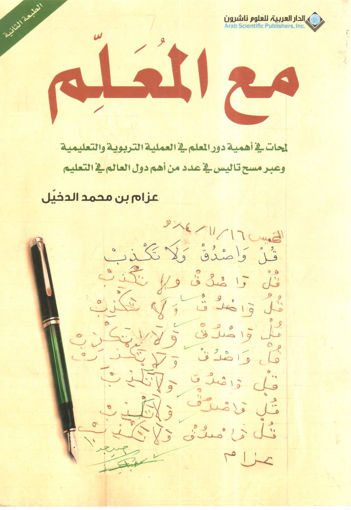 الدار العربية للعلوم ناشرون
Arab Scientific Publishers, Inc.
الطبعة الثانية
مع المُعَلِّم
لمحات في أهمية دور المعلم في العملية التربوية والتعليمية
وعبر مسح تاليس في عدد من أهم دول العالم في التعليم
عزام بن محمد الدخيّل
قُلْ وَاصْدُقْ وَلَا تَكْذِبْ
قُلْ وَاصْدُقْ وَلَا تَكْذِبْ
قُلْ وَاصْدُقْ وَلَا تَكْذِبْ
قُلْ وَاصْدُقْ وَلَا تَكْذِبْ
قُلْ وَاصْدُقْ وَلَا تَكْذِبْ
قُلْ وَاصْدُقْ وَلَا تَكْذِبْ
قُلْ وَاصْدُقْ وَلَا تَكْذِبْ
قُلْ وَاصْدُقْ وَلَا تَكْذِبْ
عزام